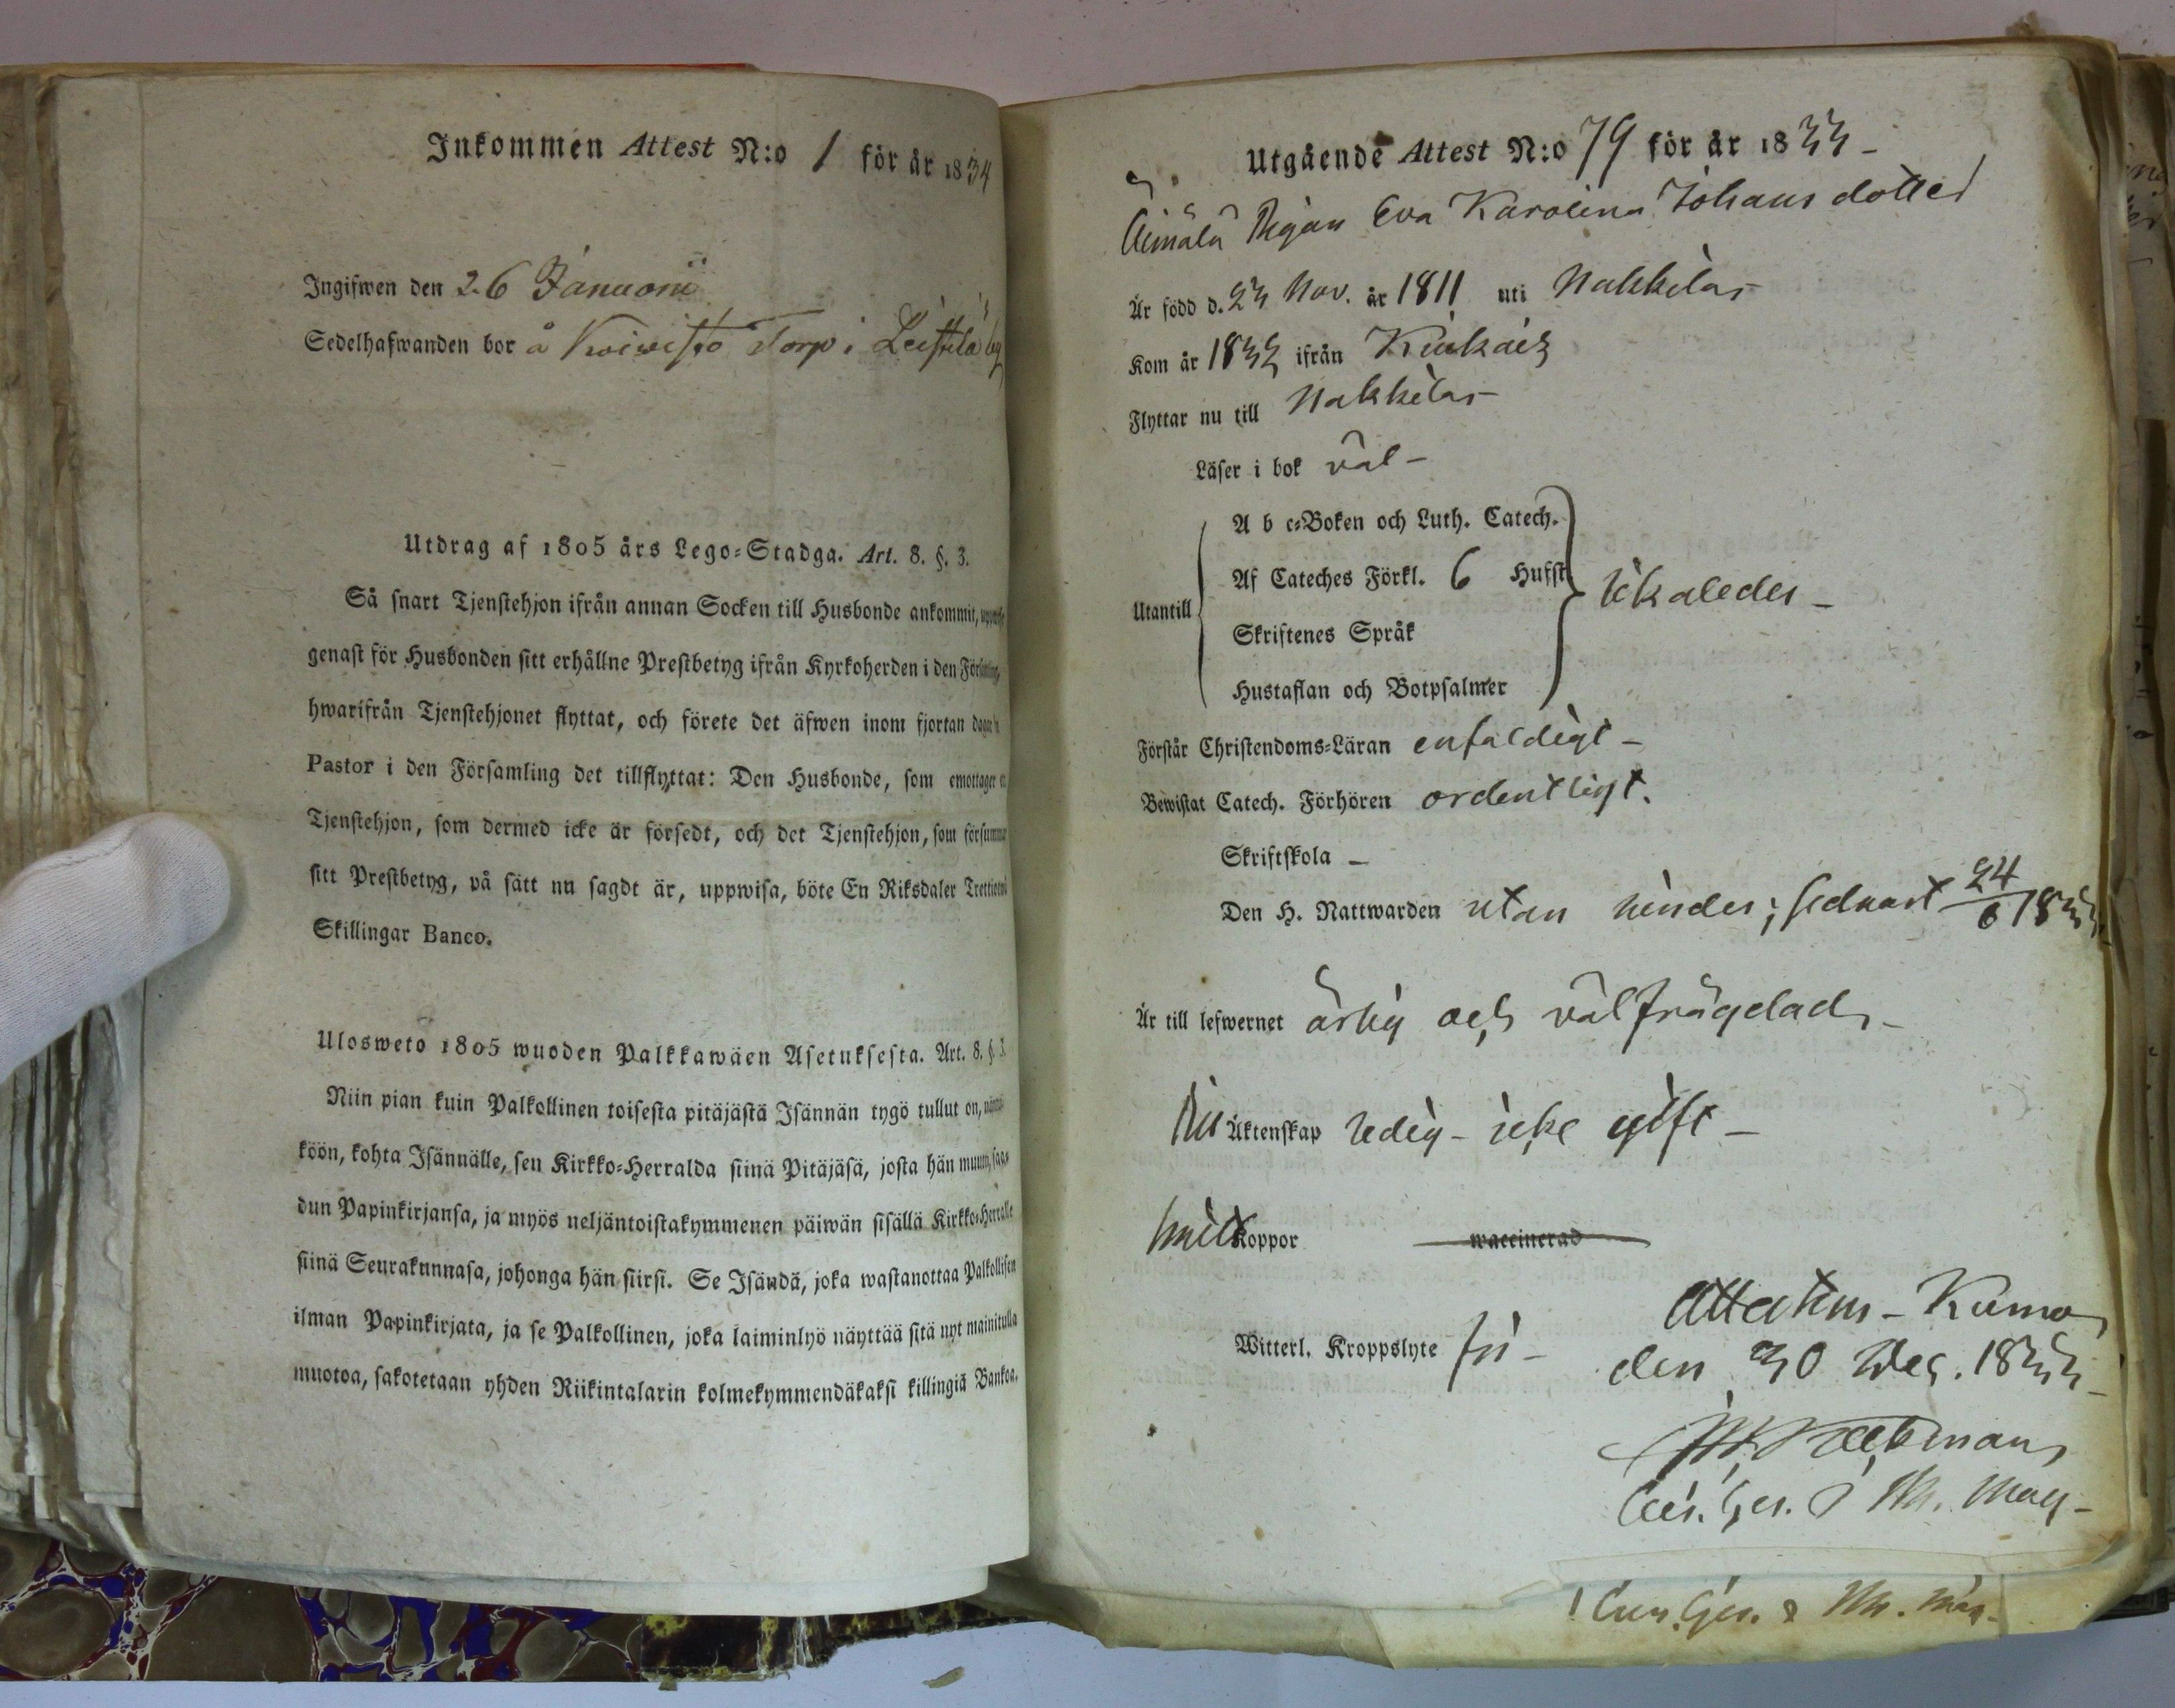 Inkommen Attest N:o 1 för år 1834
Ingifwen den 26 Januarii
Sedelhafwanden bor å Koivisto Torp i Leistilä by
Utdrag af 1805 års Lego-Stadga. Art. 8. §. 3.
Så snart Tjenstehjon ifrån annan Socken till Husbonde ankommit,
genast för Husbonden sitt erhållne Prestbetyg ifrån Kyrkoherden i den
hwarifrån Tjenstehjonet flyttat, och förete det äfwen inom fjortan dagar
Pastor i den Församling det tillflyttat: Den Husbonde, som emottager
Tjenstehjon, som dermed icke är försedt, och det Tjenstehjon, som försumma
sitt Prestbetyg, på sätt nu sagdt är, uppwisa, böte En Riksdaler
Skillingar Banco.
Ulosweto 1805 wuoden Palkkawäen Asetuksesta. Art. 8. §. 3.
Niin pian kuin Palkollinen toisesta pitäjästä Isännän tygö tullut on,
köön, kohta Isännälle, sen Kirkko-Herralda siinä Pitäjäsä, josta hän muutti, saa-
dun Papinkirjansa, ja myös neljäntoistakymmenen päiwän sisällä Kirkko-Herralle
siinä Seurakunnasa, johonga hän siirsi. Se Isändä, joka wastanottaa Palkollisen
ilman Papinkirjata, ja se Palkollinen, joka laiminlyö näyttää sitä nyt mainitulla
muotoa, sakotetaan yhden Riikintalarin kolmekymmendäkaksi killingiä Bankoa.
Utgående Attest N:o 79 för år 1833 -
Pigan Eva Karolina Johans dotter
Är född d. 23 Nov. år 1811 uti Nakkila -
Kom år 1832 ifrån Kiukais
Flyttar nu till Nakkila -
Läser i bok väl -
Utantill
A b c-Boken och Luth. Catech.
Af Cateches Förkl. 6 Hufst.
Skriftenes Språk
Hustaflan och Botpsalmer
likaledes -
Förstår Christendoms-Läran enfaldigt -
Bewistat Catech. Förhören ordentligt.
Skriftskola -
Den H. Nattwarden utan hinder; sednast 24/6 1833
Är till lefwernet ärlig och välfrägdad -
till Äktenskap ledig - icke gift -
haft Koppor waccinerad
Witterl. Kroppslyte fri -
Attesteras - Kumo
den 30 Dec. 1833 -